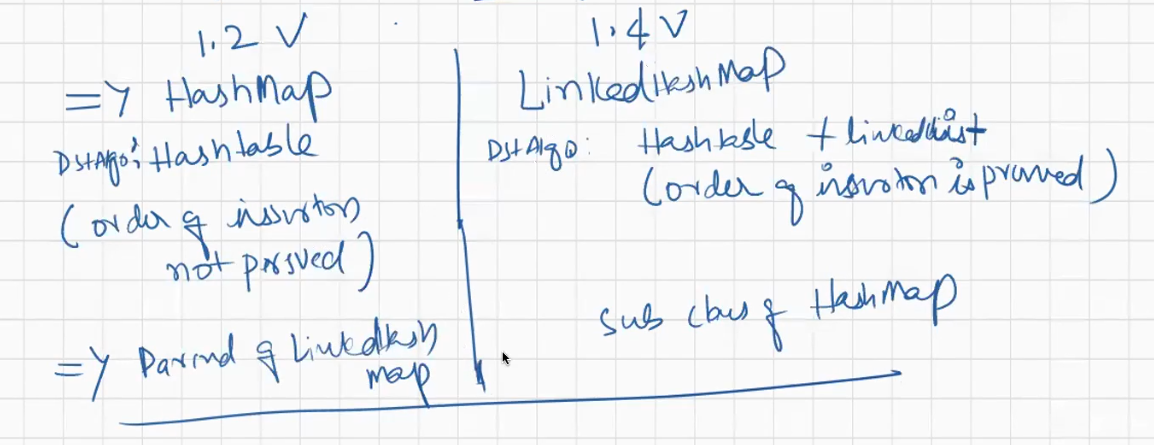 1.2 V
=> HashMap
DS+Algo: Hashtable
(order of insertion
not preserved)
=> Parent of LinkedHash
map
1.4 V
LinkedHashMap
DS+Algo: Hashtable + linkedlist
(order of insertion is preserved)
sub class of HashMap